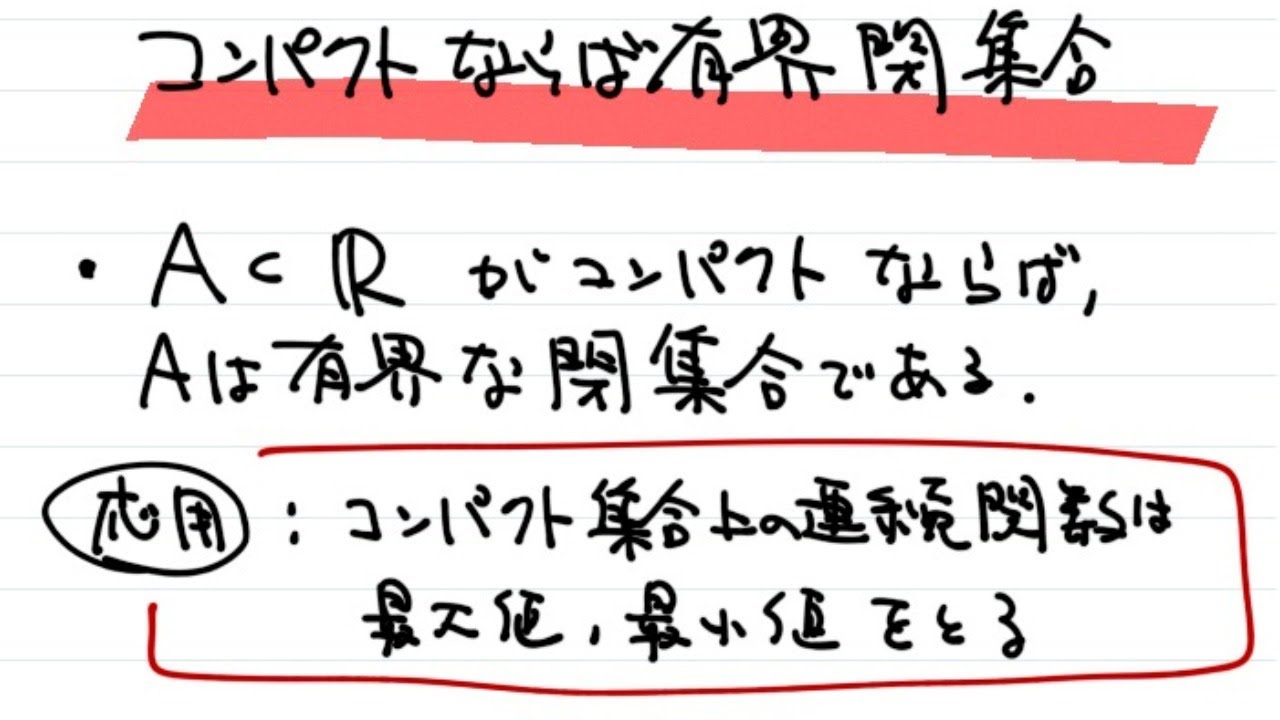 コンパクトならば有界閉集合
・A⊂ℝ がコンパクトならば,
Aは有界な閉集合である.
応用：コンパクト集合上の連続関数は
最大値,最小値をとる